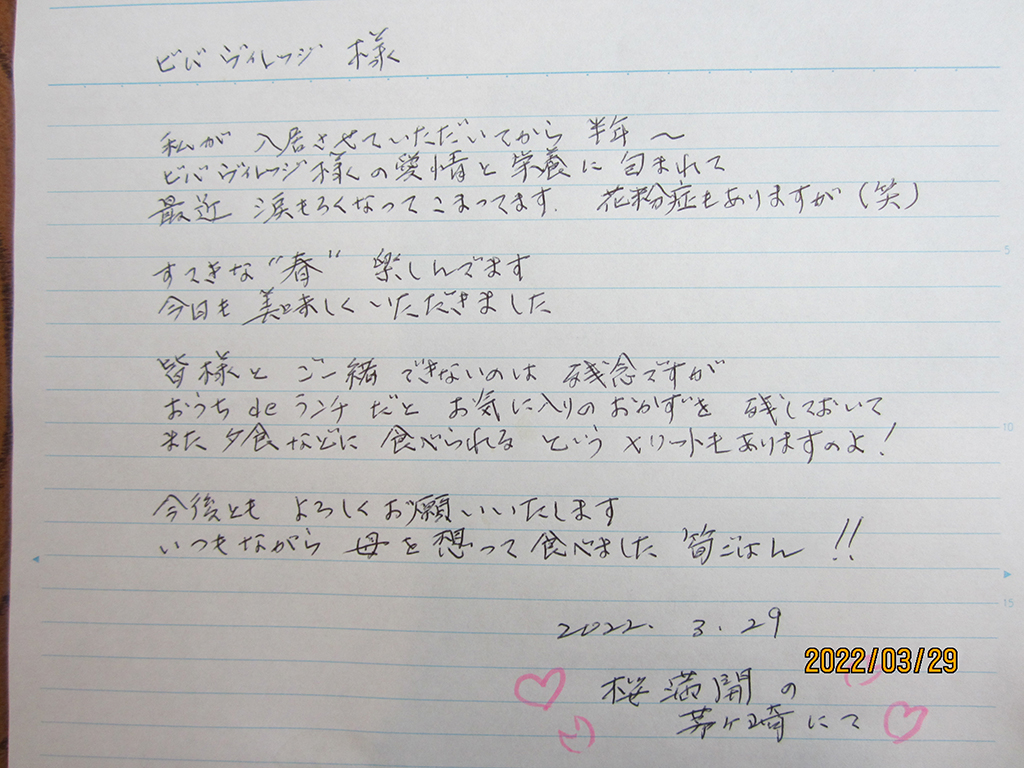 ビバ ヴィレッジ 様
私が 入居させていただいてから 半年〜
ビバ ヴィレッジ様の愛情と栄養に 包まれて
最近 涙もろくなってこまってます. 花粉症もありますが(笑)
すてきな"春" 楽しんでます
今日も美味しくいただきました
皆様と ご一緒 できないのは 残念ですが
おうち de ランチ だと お気に入りの おかずを 残しておいて
また夕食などに 食べられる という メリットもありますのよ!
今後とも よろしくお願いいたします
いつもながら 母を想って食べました 筍ごはん!!
2022. 3. 29
2022/03/29
桜満開の
茅ヶ崎にて